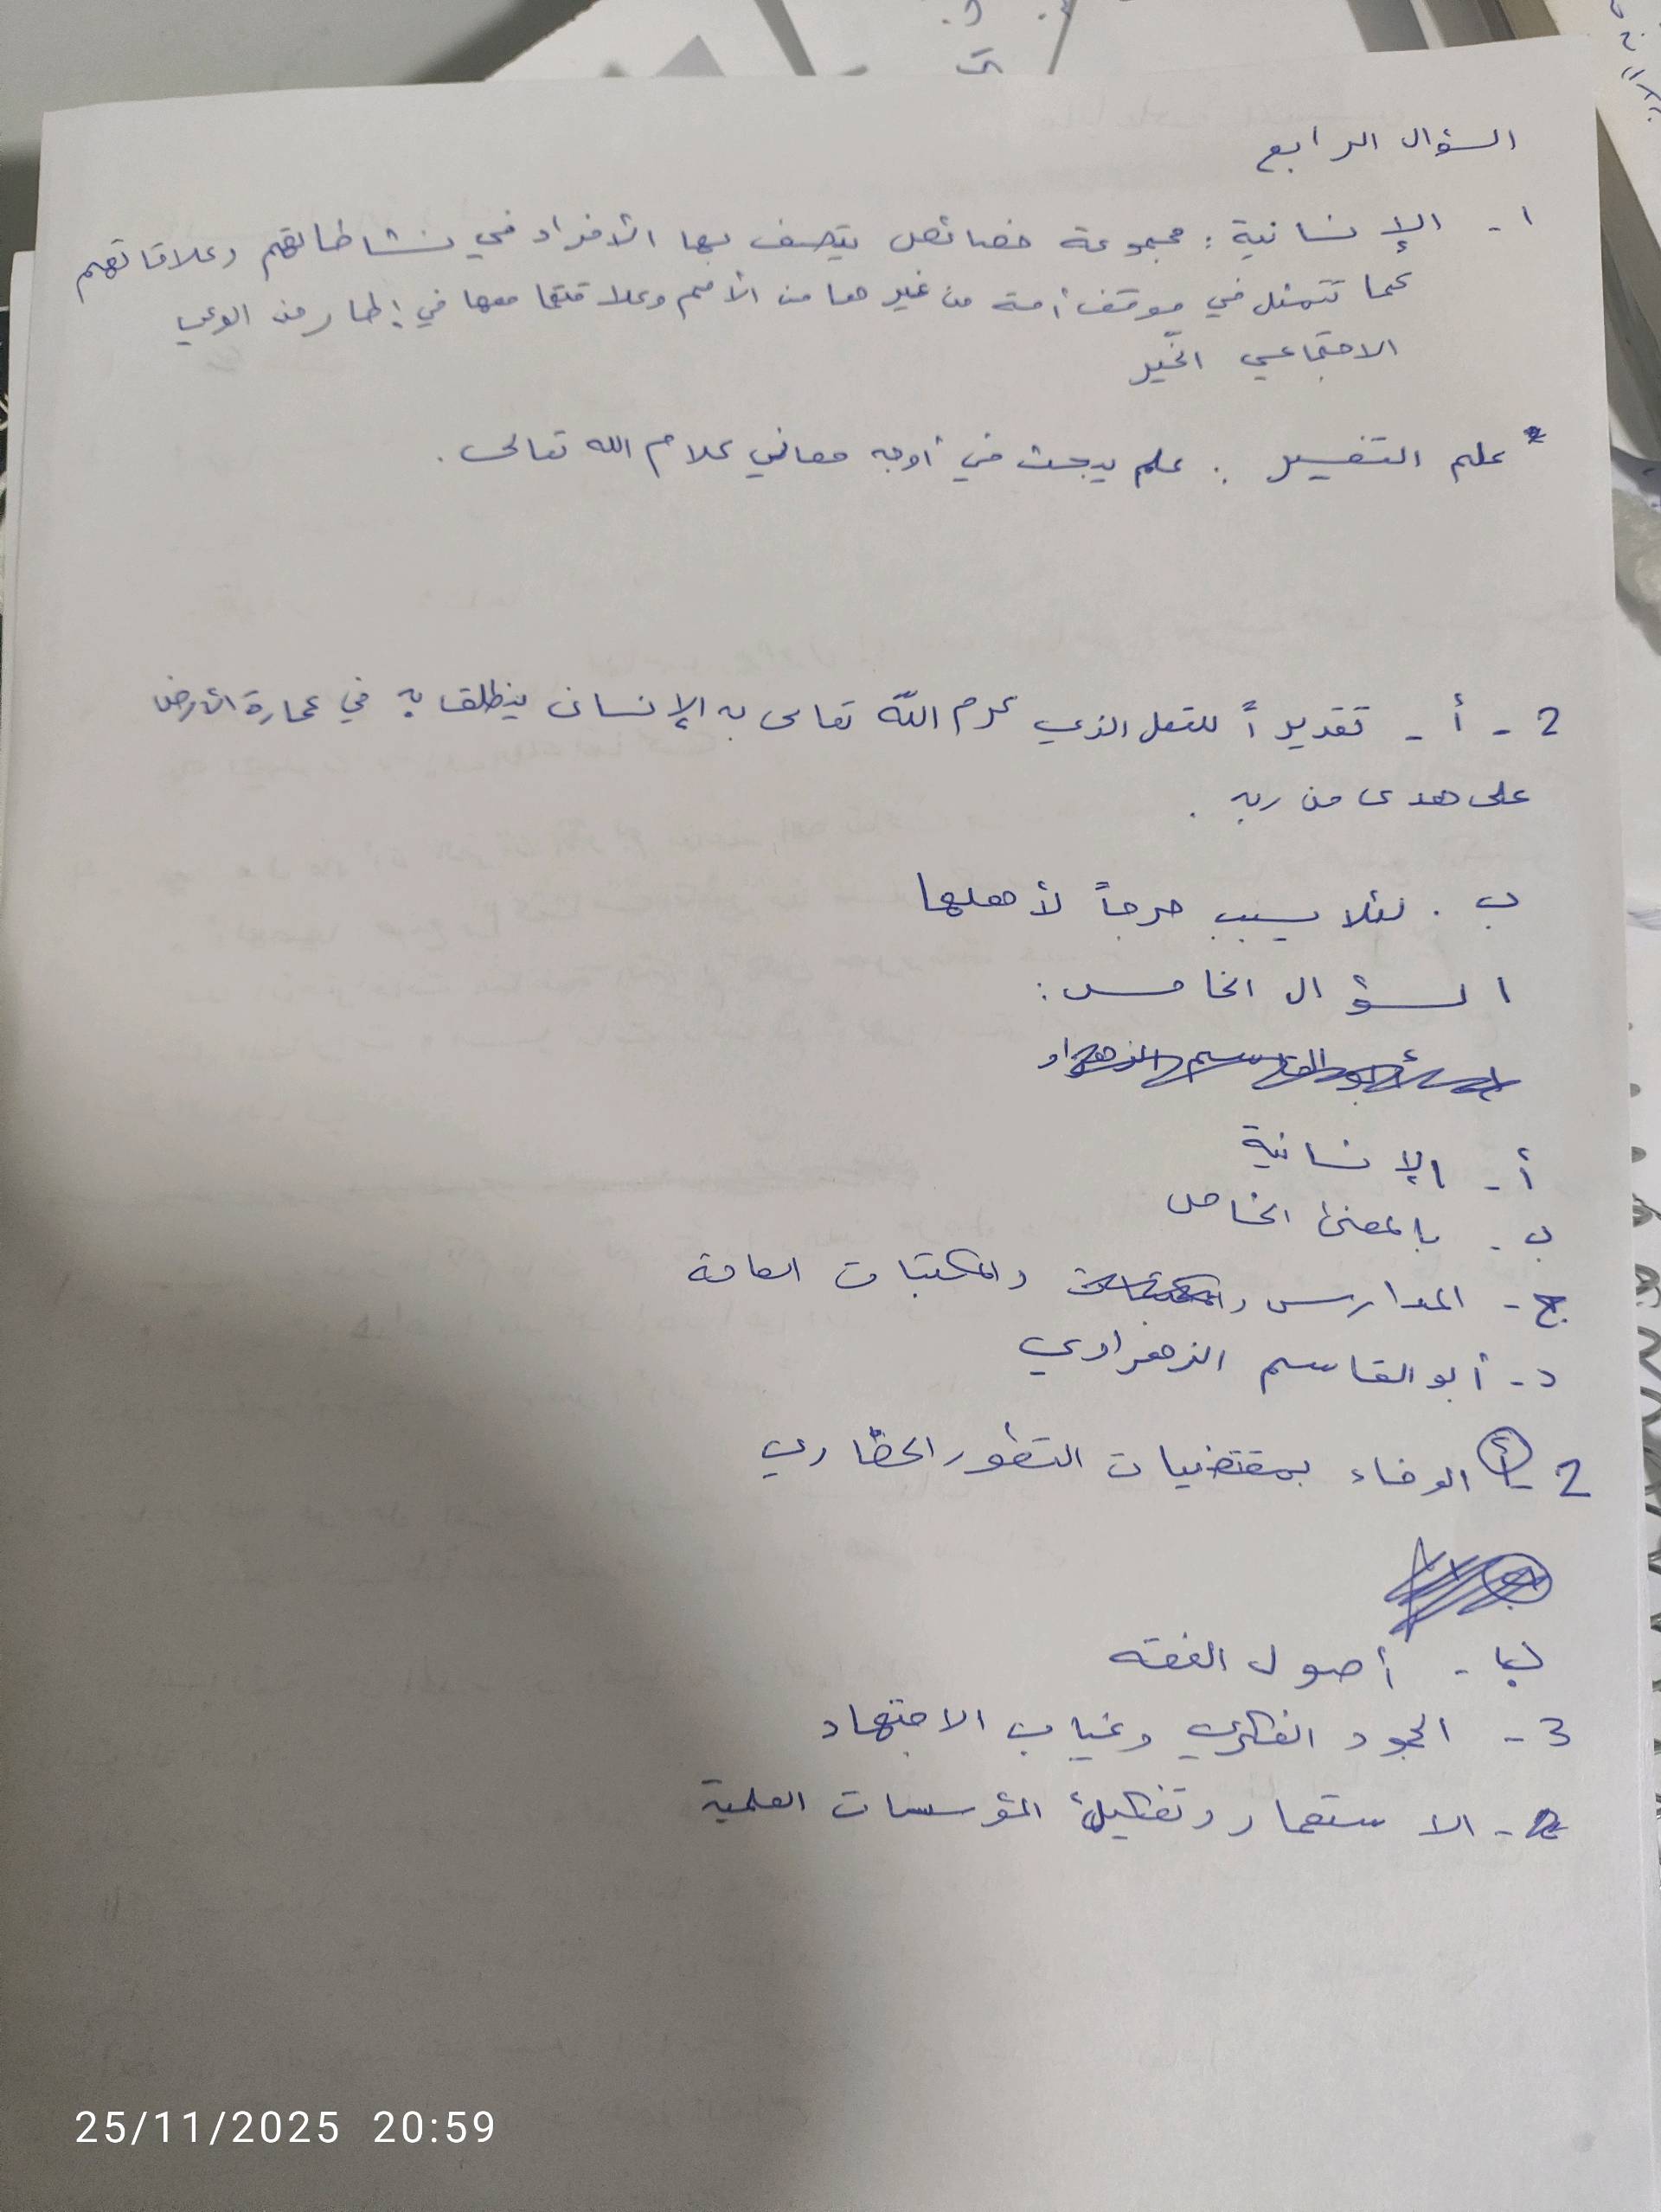 السؤال الرابع
١- الإنسانية : مجموعة خصائص يتصف بها الأفراد في نشاطاتهم وعلاقاتهم
كما تتمثل في موقف أمة من غيرها من الأمم وعلاقتها معها في إطار من الوعي
الاجتماعي الخيّر
* علم التفسير : علم يبحث في أوجه معاني كلام الله تعالى .
2 - أ - تقديراً للعقل الذي كرم الله تعالى به الإنسان ينطلق به في عمارة الأرض
على هدى من ربه .
ب . لئلا يسبب حرجاً لأهلها
السؤال الخامس :
أ - الإنسانية
ب - بالمعنى الخاص
ج - المدارس والمكتبات العامة
د - أبو القاسم الزهراوي
2 - أ الوفاء بمقتضيات التطور الحضاري
ب - أصول الفقه
3 - الجمود الفكري وغياب الاجتهاد
- الاستعمار وتفكيك المؤسسات العلمية
25/11/2025 20:59